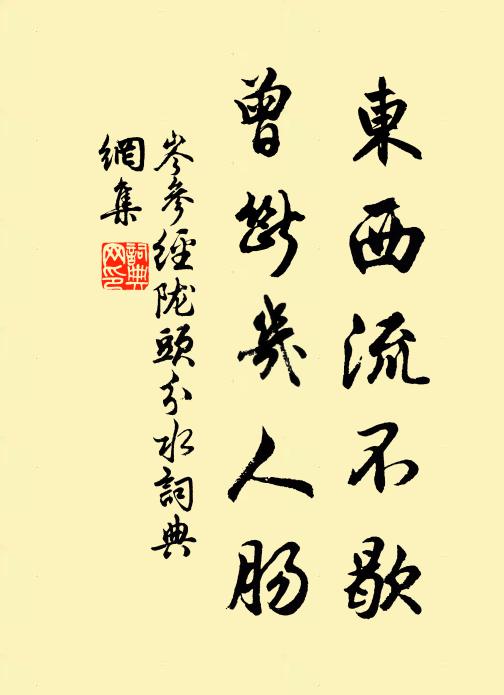 東西流不歇
曾斷幾人肠
岑參經陇頭分水詞典
網集
詞典
网印